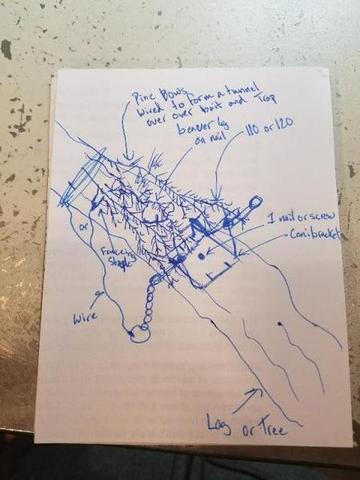 Pine Bows
wired to form a tunnel
over over bait and Trap
beaver leg
on nail
110 or 120
1 nail or screw
Conibracket
or
Fencing
Staple
Wire
Log or Tree